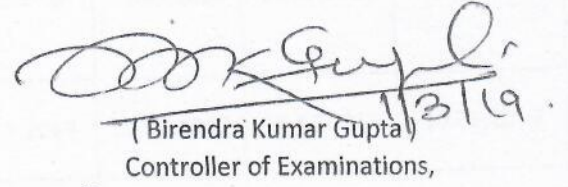 BKGupta
1/3/19.
( Birendra Kumar Gupta )
Controller of Examinations,